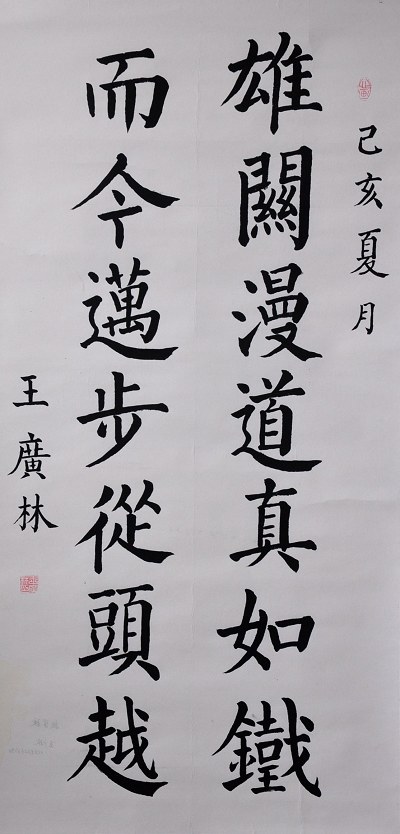 己亥夏月
雄關漫道真如鐵
而今邁步從頭越
王廣林